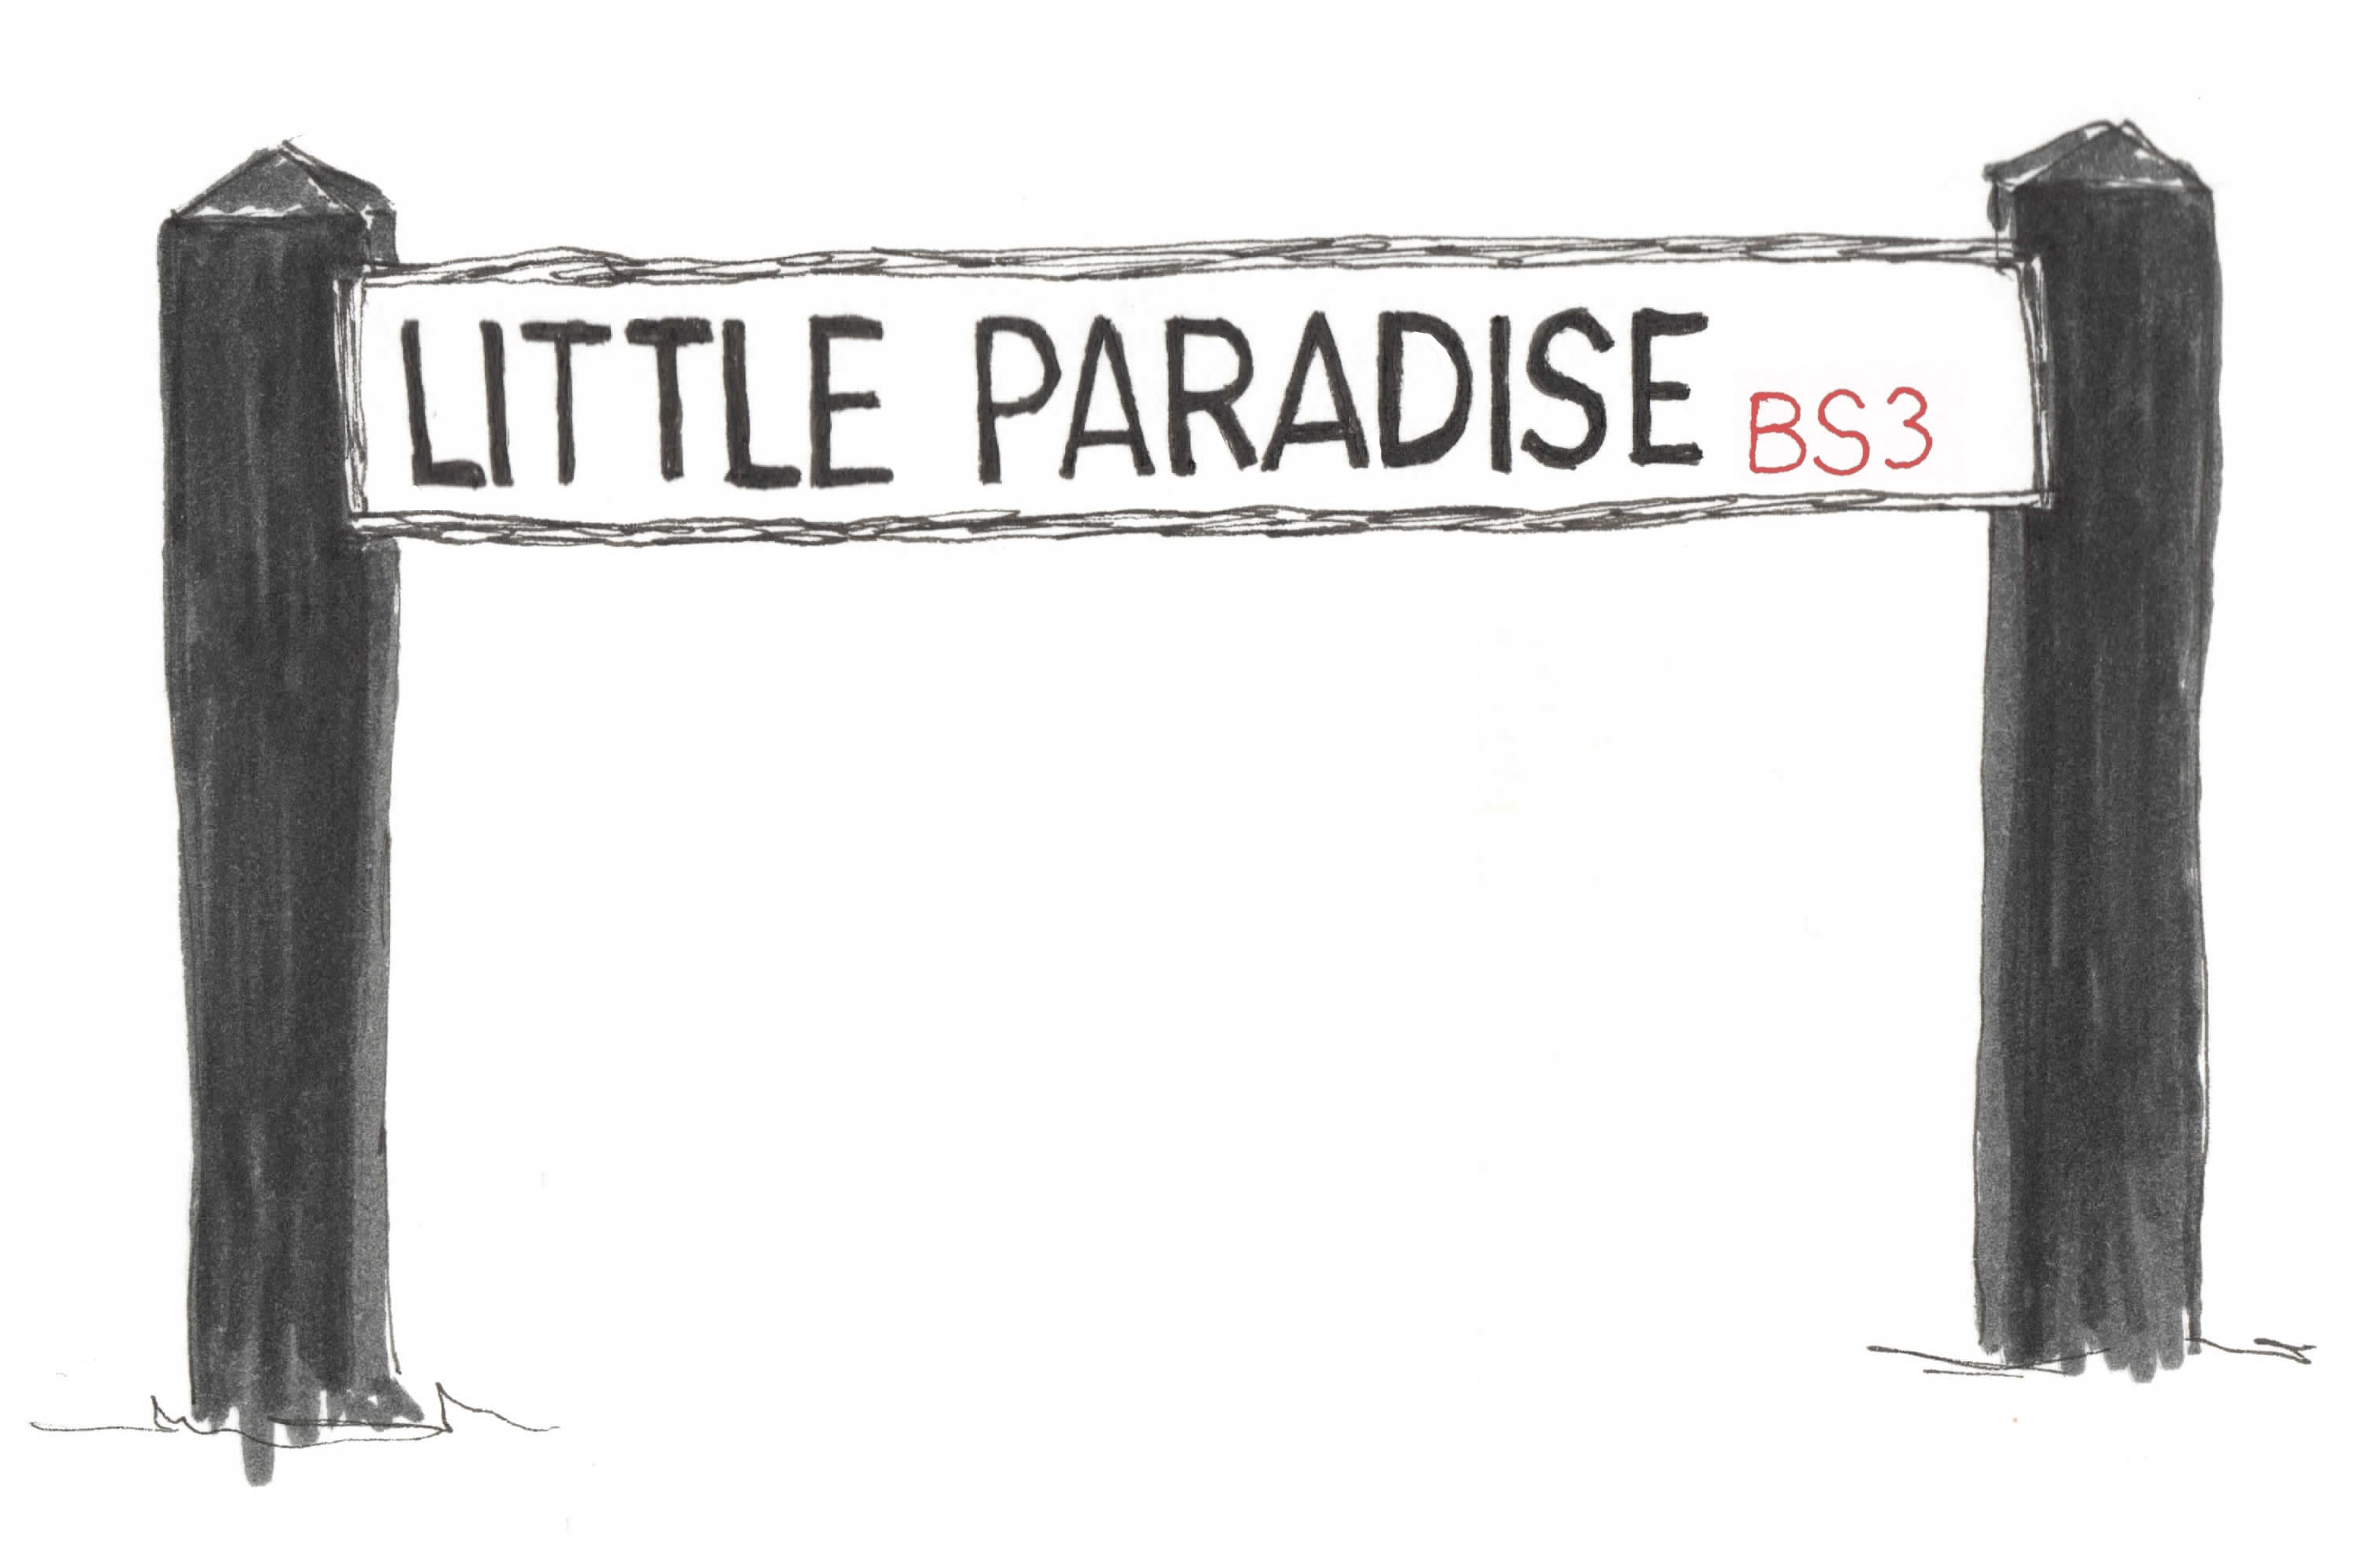 LITTLE PARADISE BS3